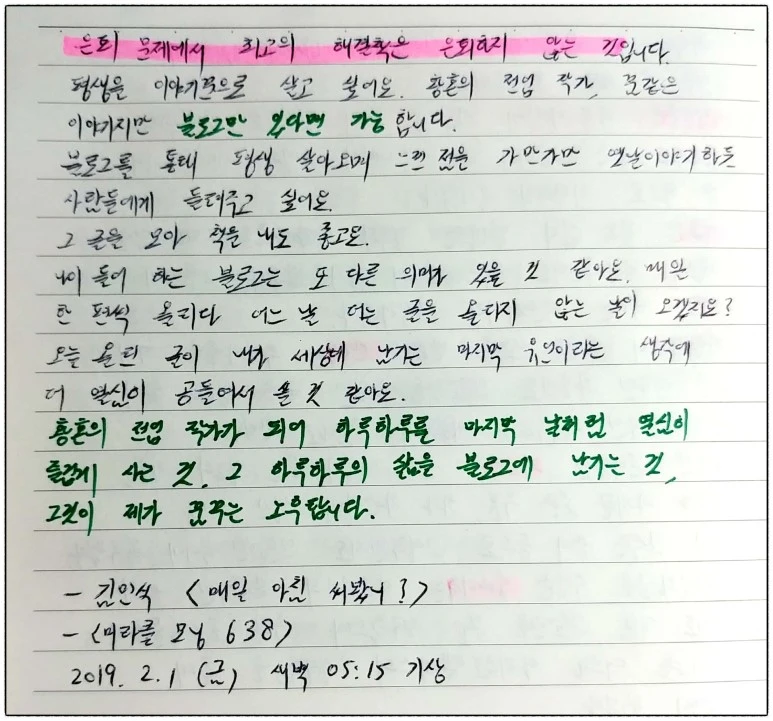 은퇴 문제에서 최고의 해결책은 은퇴하지 않는 것입니다.
평생을 이야기꾼으로 살고 싶어요. 황혼의 전업 작가, 꿈같은
이야기지만 블로그만 있다면 가능합니다.
블로그를 통해 평생 살아오며 느낀 점을 가만가만 옛날이야기하듯
사람들에게 들려주고 싶어요.
그 글을 모아 책을 내도 좋고요.
나이 들어 하는 블로그는 또 다른 의미가 있을 것 같아요. 매일
한 편씩 올리다 어느 날 더는 글을 올리지 않는 날이 오겠지요?
오늘 올린 글이 내가 세상에 남기는 마지막 유언이라는 생각에
더 열심히 공들여서 쓸 것 같아요.
황혼의 전업 작가가 되어 하루하루를 마지막 날처럼 열심히
즐겁게 사는 것, 그 하루하루의 삶을 블로그에 남기는 것,
그것이 제가 꿈꾸는 노후랍니다.
- 김민식 <매일 아침 써봤니?>
- <미라클 모닝 638>
2019. 2. 1 (금) 새벽 05:15 기상